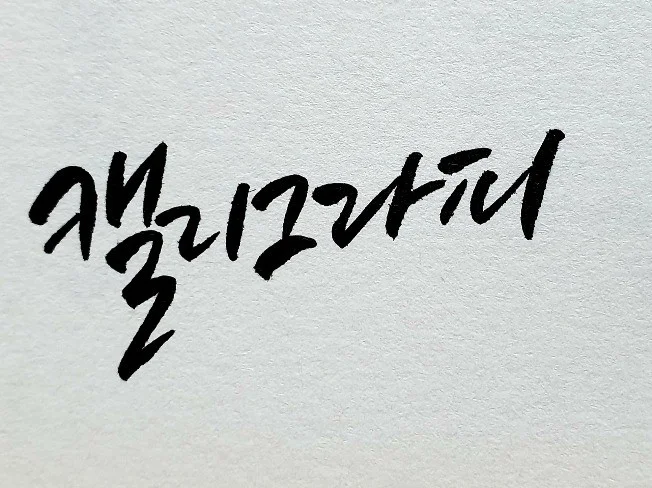 캘리그라피